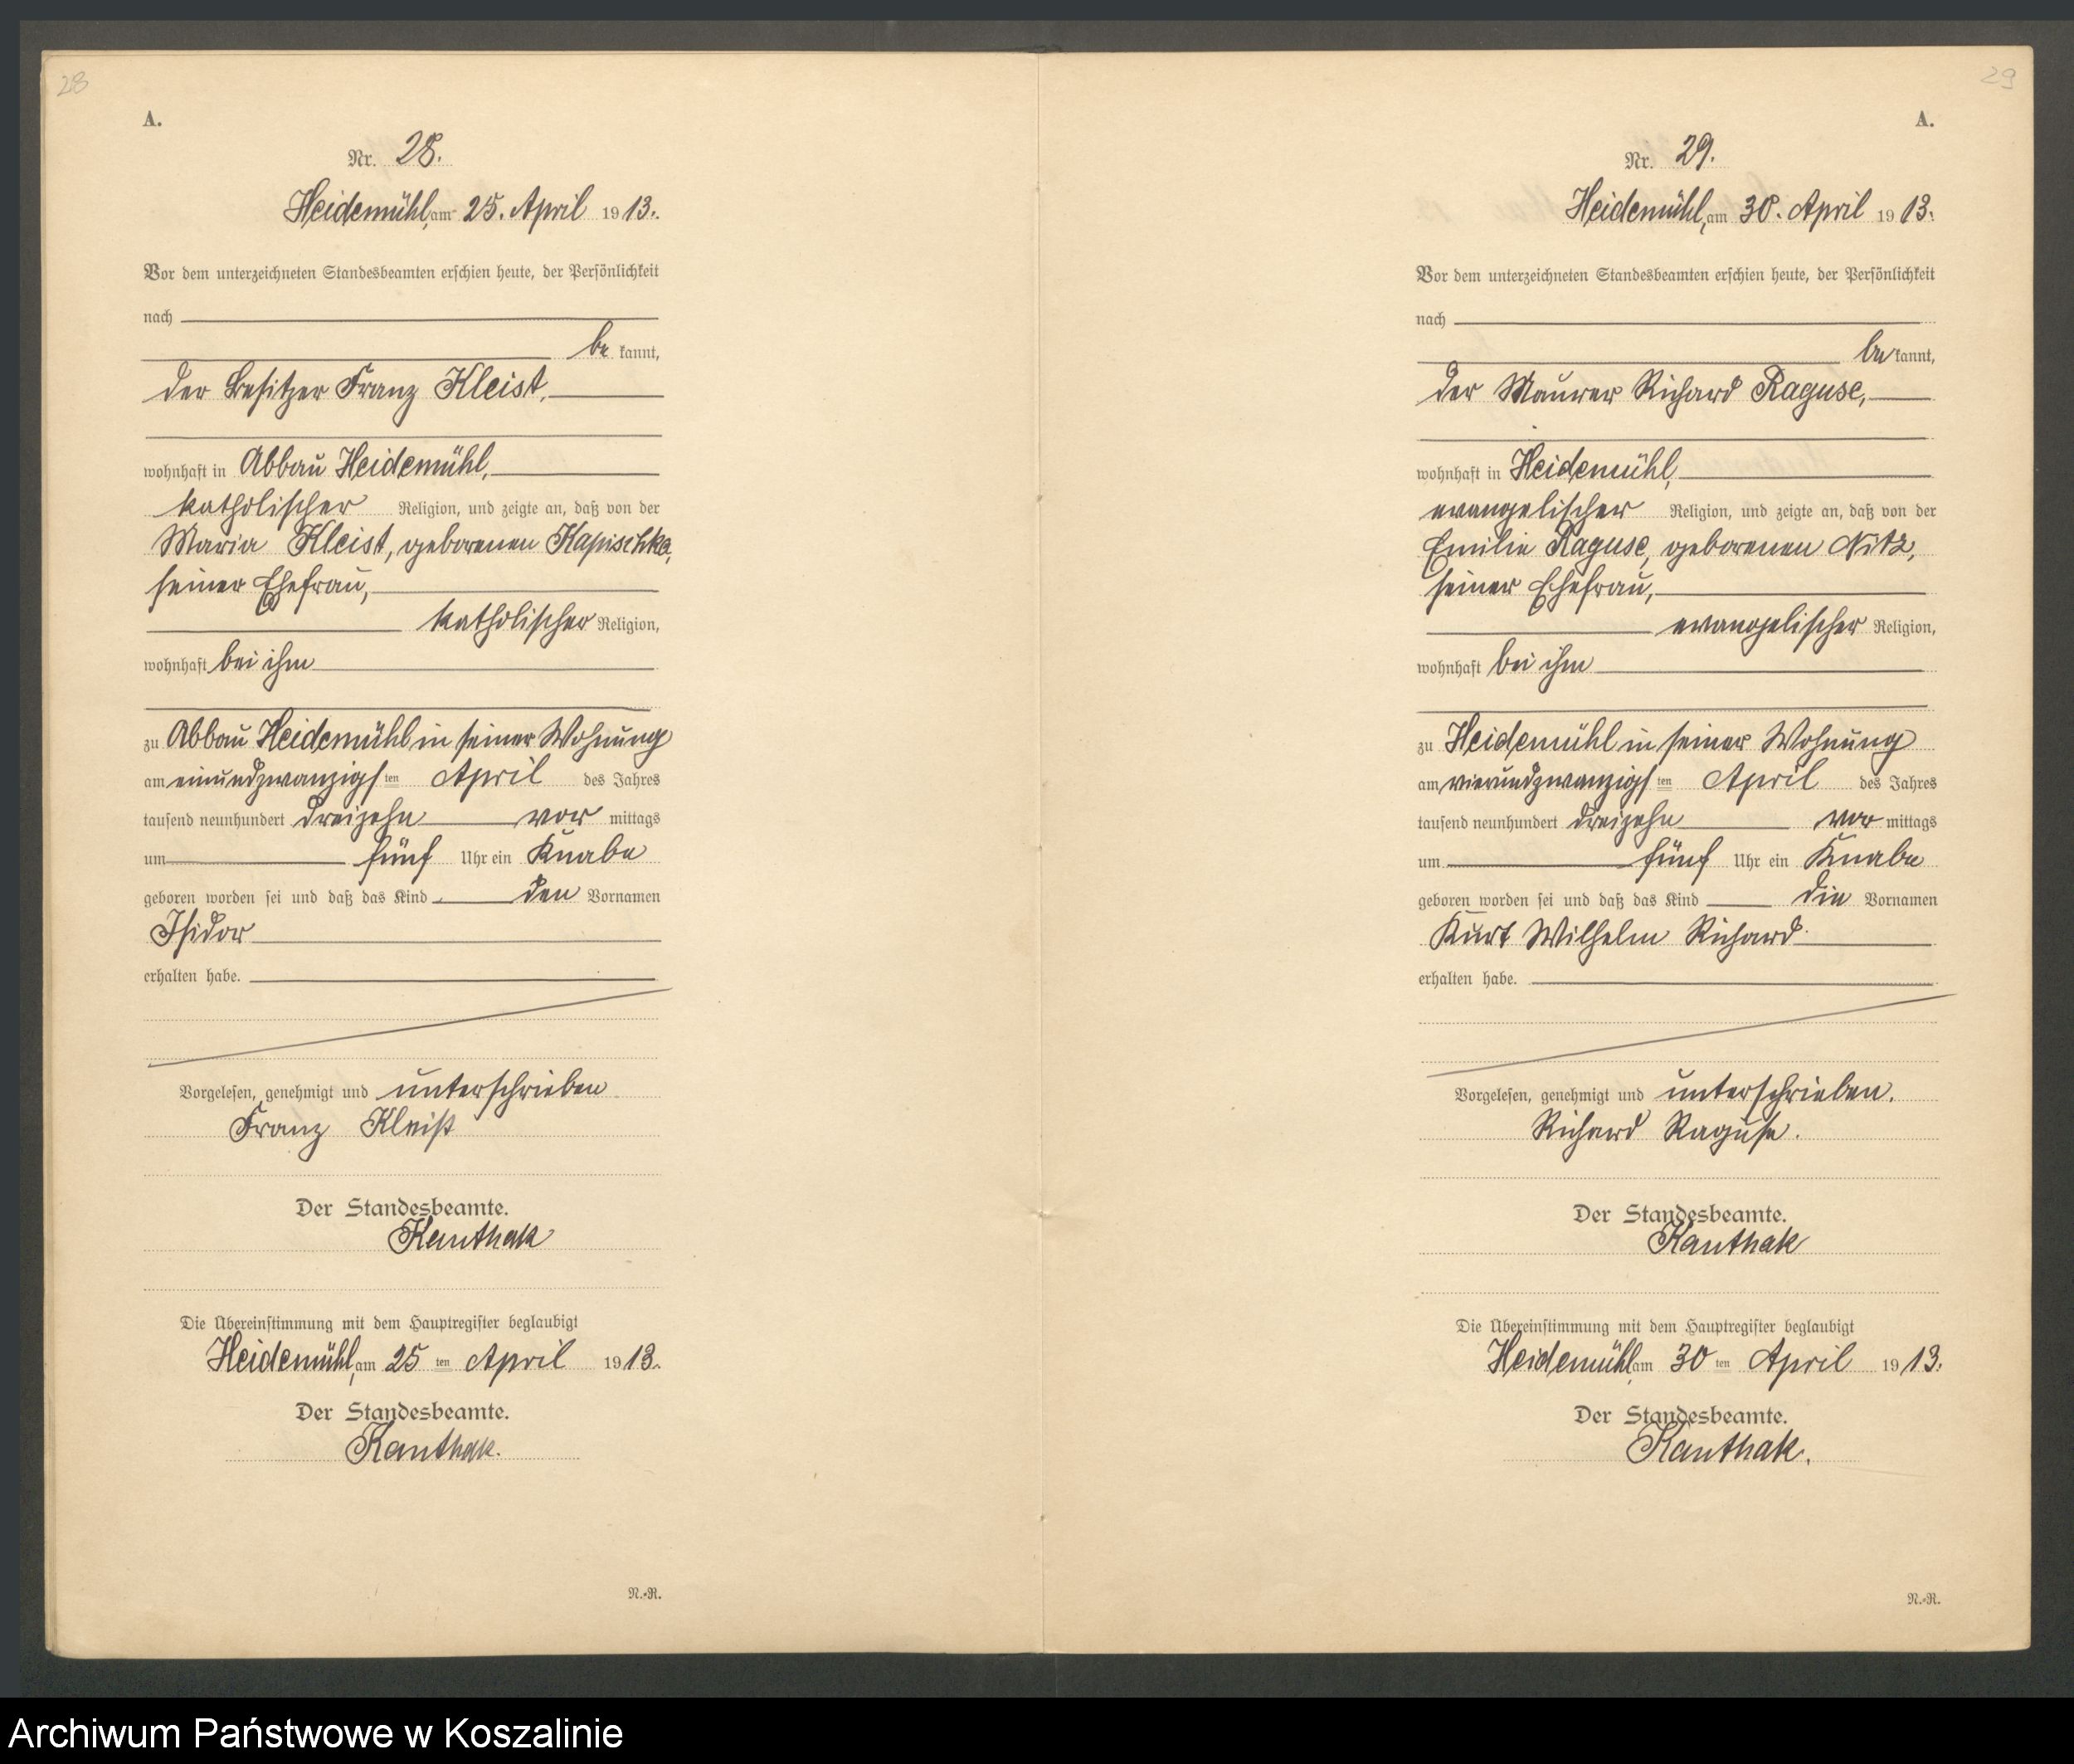 28
A.
Nr. 28.
Heidemühl, am 25. April 1913.
Vor dem unterzeichneten Standesbeamten erschien heute, der Persönlichkeit
nach
be kannt,
der Besitzer Franz Kleist,
wohnhaft in Abbau Heidemühl,
katholischer Religion, und zeigte an, daß von der
Maria Kleist, geborenen Kapischke,
seiner Ehefrau,
katholischer Religion,
wohnhaft bei ihm
zu Abbau Heidemühl in seiner Wohnung
am einundzwanzigsten April des Jahres
tausend neunhundert dreizehn vor mittags
um fünf Uhr ein Knabe
geboren worden sei und daß das Kind den Vornamen
Isidor
erhalten habe.
Vorgelesen, genehmigt und unterschrieben
Franz Kleist
Der Standesbeamte.
Kanthak
Die Übereinstimmung mit dem Hauptregister beglaubigt
Heidemühl, am 25 ten April 1913.
Der Standesbeamte.
Kanthak.
N.-R.
29
A.
Nr. 29.
Heidemühl, am 30. April 1913.
Vor dem unterzeichneten Standesbeamten erschien heute, der Persönlichkeit
nach
be kannt,
der Maurer Richard Raguse,
wohnhaft in Heidemühl,
evangelischer Religion, und zeigte an, daß von der
Emilie Raguse, geborenen Nitz,
seiner Ehefrau,
evangelischer Religion,
wohnhaft bei ihm
zu Heidemühl in seiner Wohnung
am vierundzwanzigsten April des Jahres
tausend neunhundert dreizehn vor mittags
um fünf Uhr ein Knabe
geboren worden sei und daß das Kind die Vornamen
Kurt Wilhelm Richard
erhalten habe.
Vorgelesen, genehmigt und unterschrieben.
Richard Raguse.
Der Standesbeamte.
Kanthak
Die Übereinstimmung mit dem Hauptregister beglaubigt
Heidemühl, am 30 ten April 1913.
Der Standesbeamte.
Kanthak.
N.-R.
Archiwum Państwowe w Koszalinie